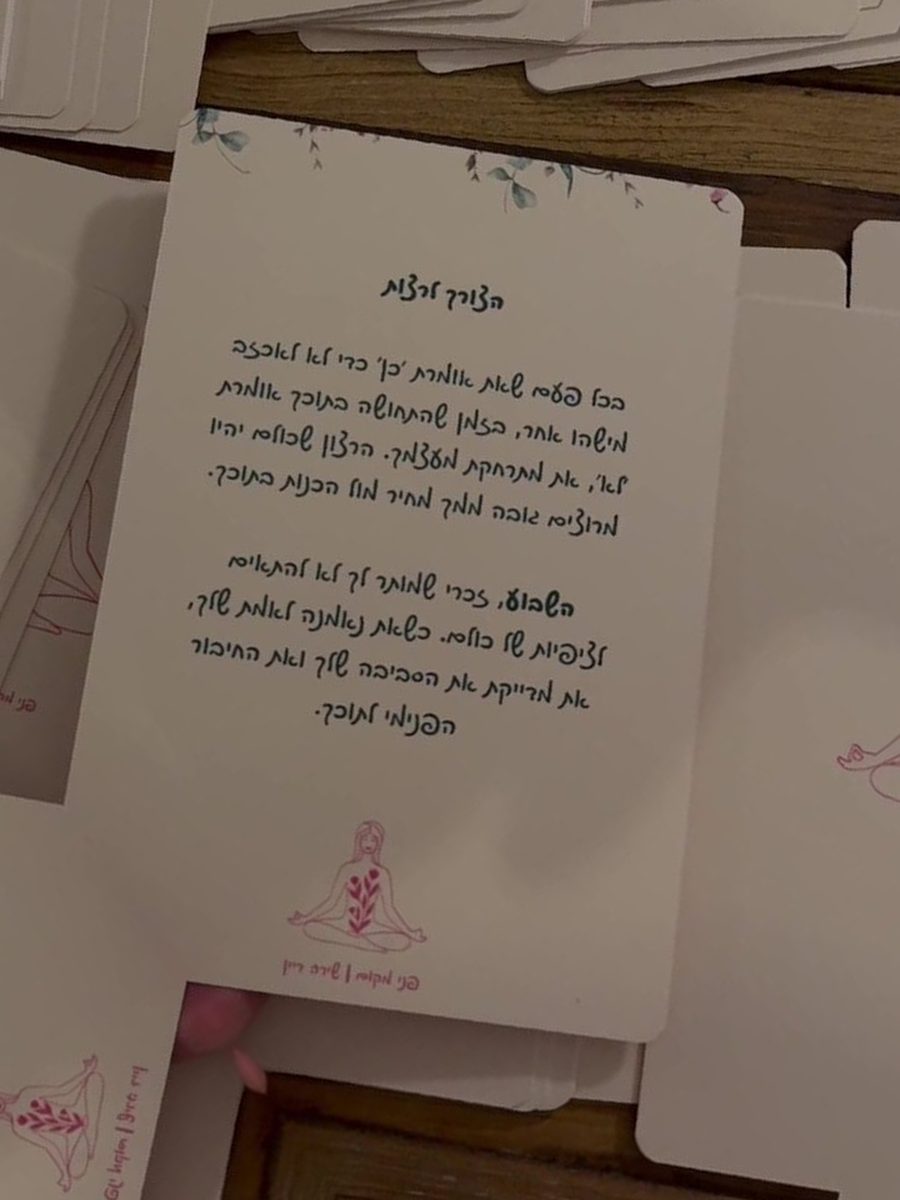 הצורך לרצות
בכל פעם שאת אומרת 'כן' כדי לא לאכזב
מישהו אחר, בזמן שהתחושה בתוכך אומרת
'לא', את מתרחקת מעצמך. הרצון שכולם יהיו
מרוצים גובה ממך מחיר מול הכנות בתוכך.
השבוע, זכרי שמותר לך לא להתאים
לציפיות של כולם. כשאת נאמנה לאמת שלך,
את מדייקת את הסביבה שלך ואת החיבור
הפנימי לתוכך.
פני מקום | שירה דיין
פני